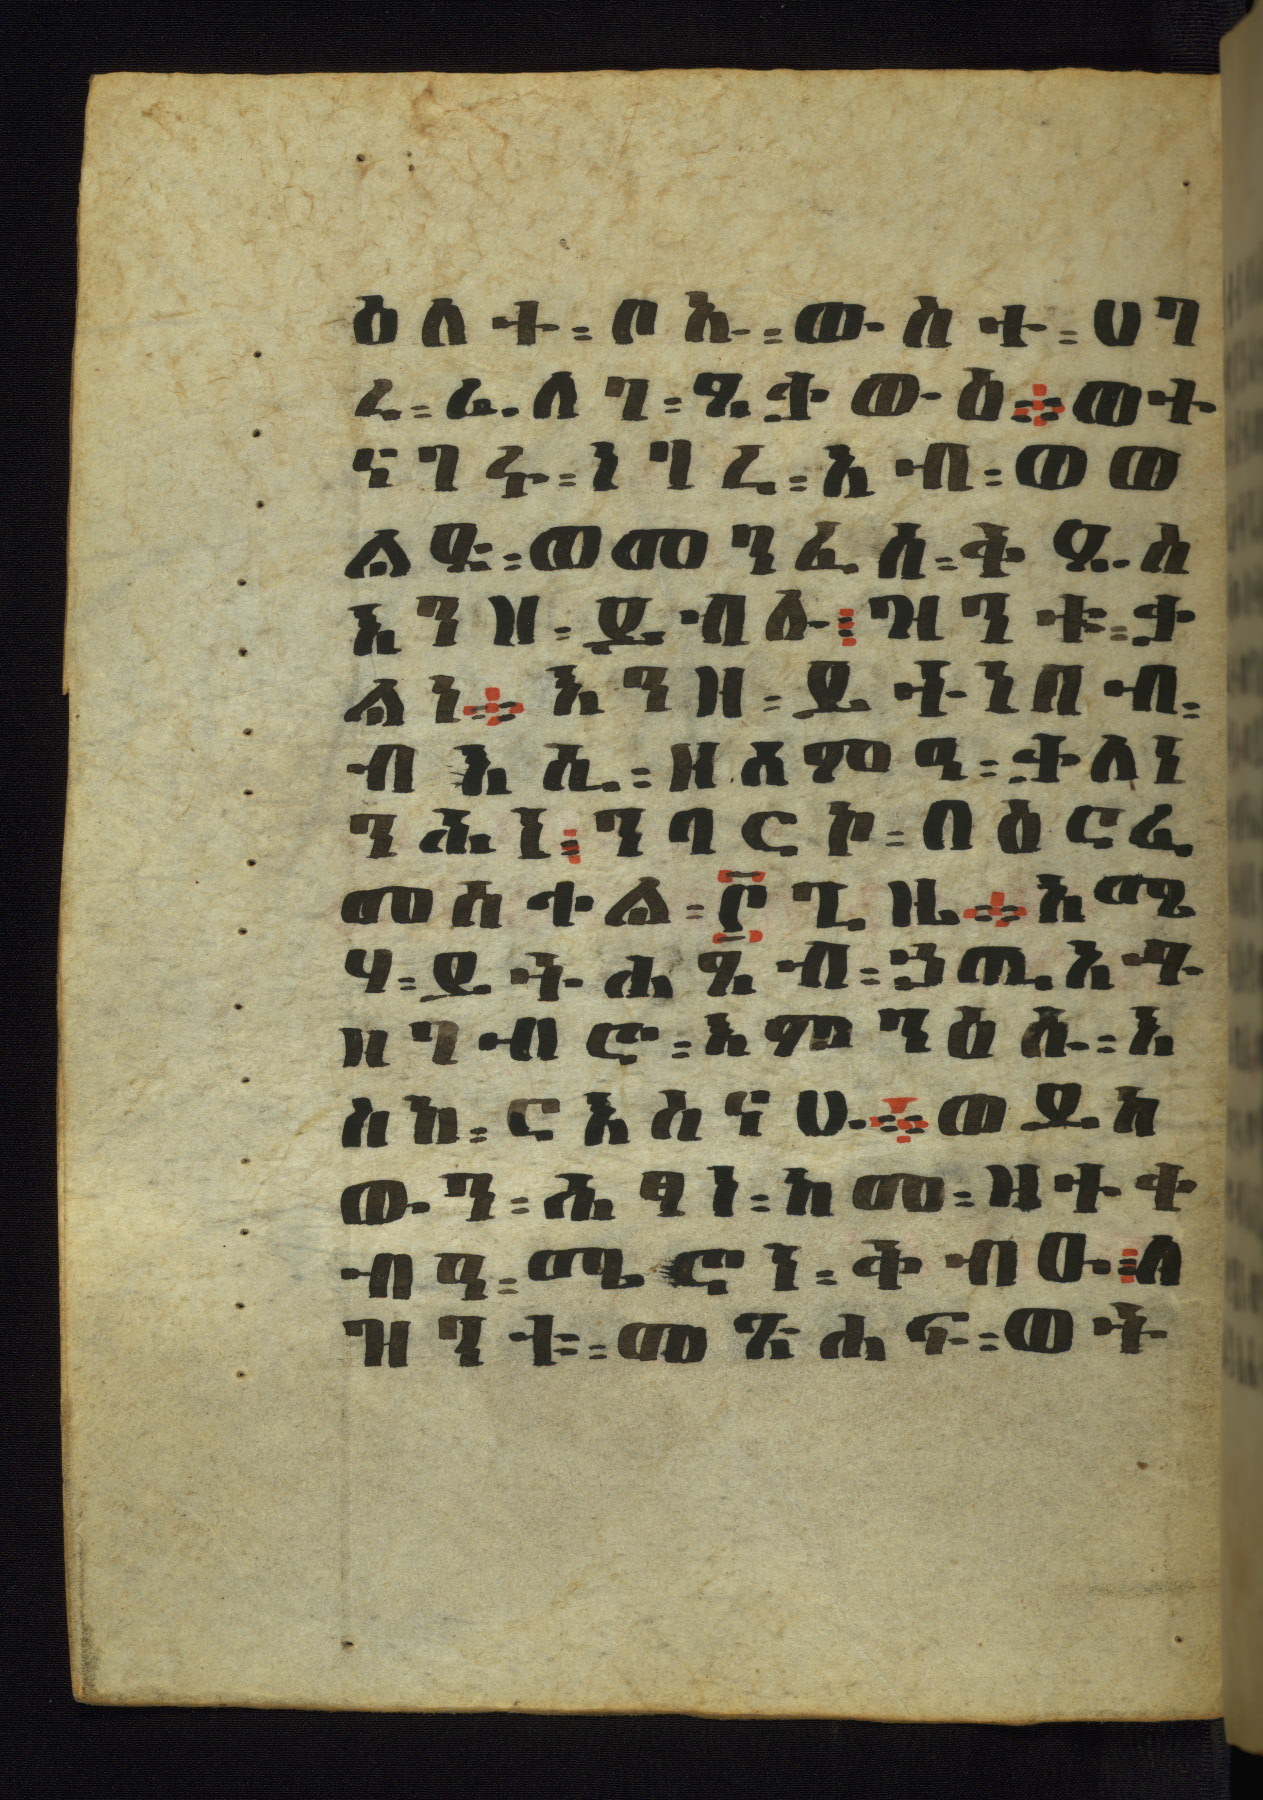 ዕለተ፡ቦኡ፡ውስተ፡ሀገ
ረ፡ፊለገ፡ጼቃውዕ።ወተ
ናገሩ፡ነገረ፡አብ፡ወወ
ልድ፡ወመንፈስ፡ቅዱስ
እንዘ፡ይብሉ፤ዝንቱ፡ቃ
ልነ።እንዘ፡ይትነበብ፡
ብእሲ፡ዘሰምዓ፡ቃለነ
ንሕነ፤ንባርኮ፡በዕርፈ
መስቀል፡፫ጊዜ።እሜ
ሃ፡ይትሐፄብ፡ኃጢአቱ
ዘገብሮ፡እምንዕሱ፡እ
ስከ፡ርእስናሁ።ወይከ
ውን፡ሕፃነ፡ከመ፡ዘተቀ
ብዓ፡ሜሮነ፡ቅብዑ፤ለ
ዝንቱ፡መጽሐፍ፡ወት